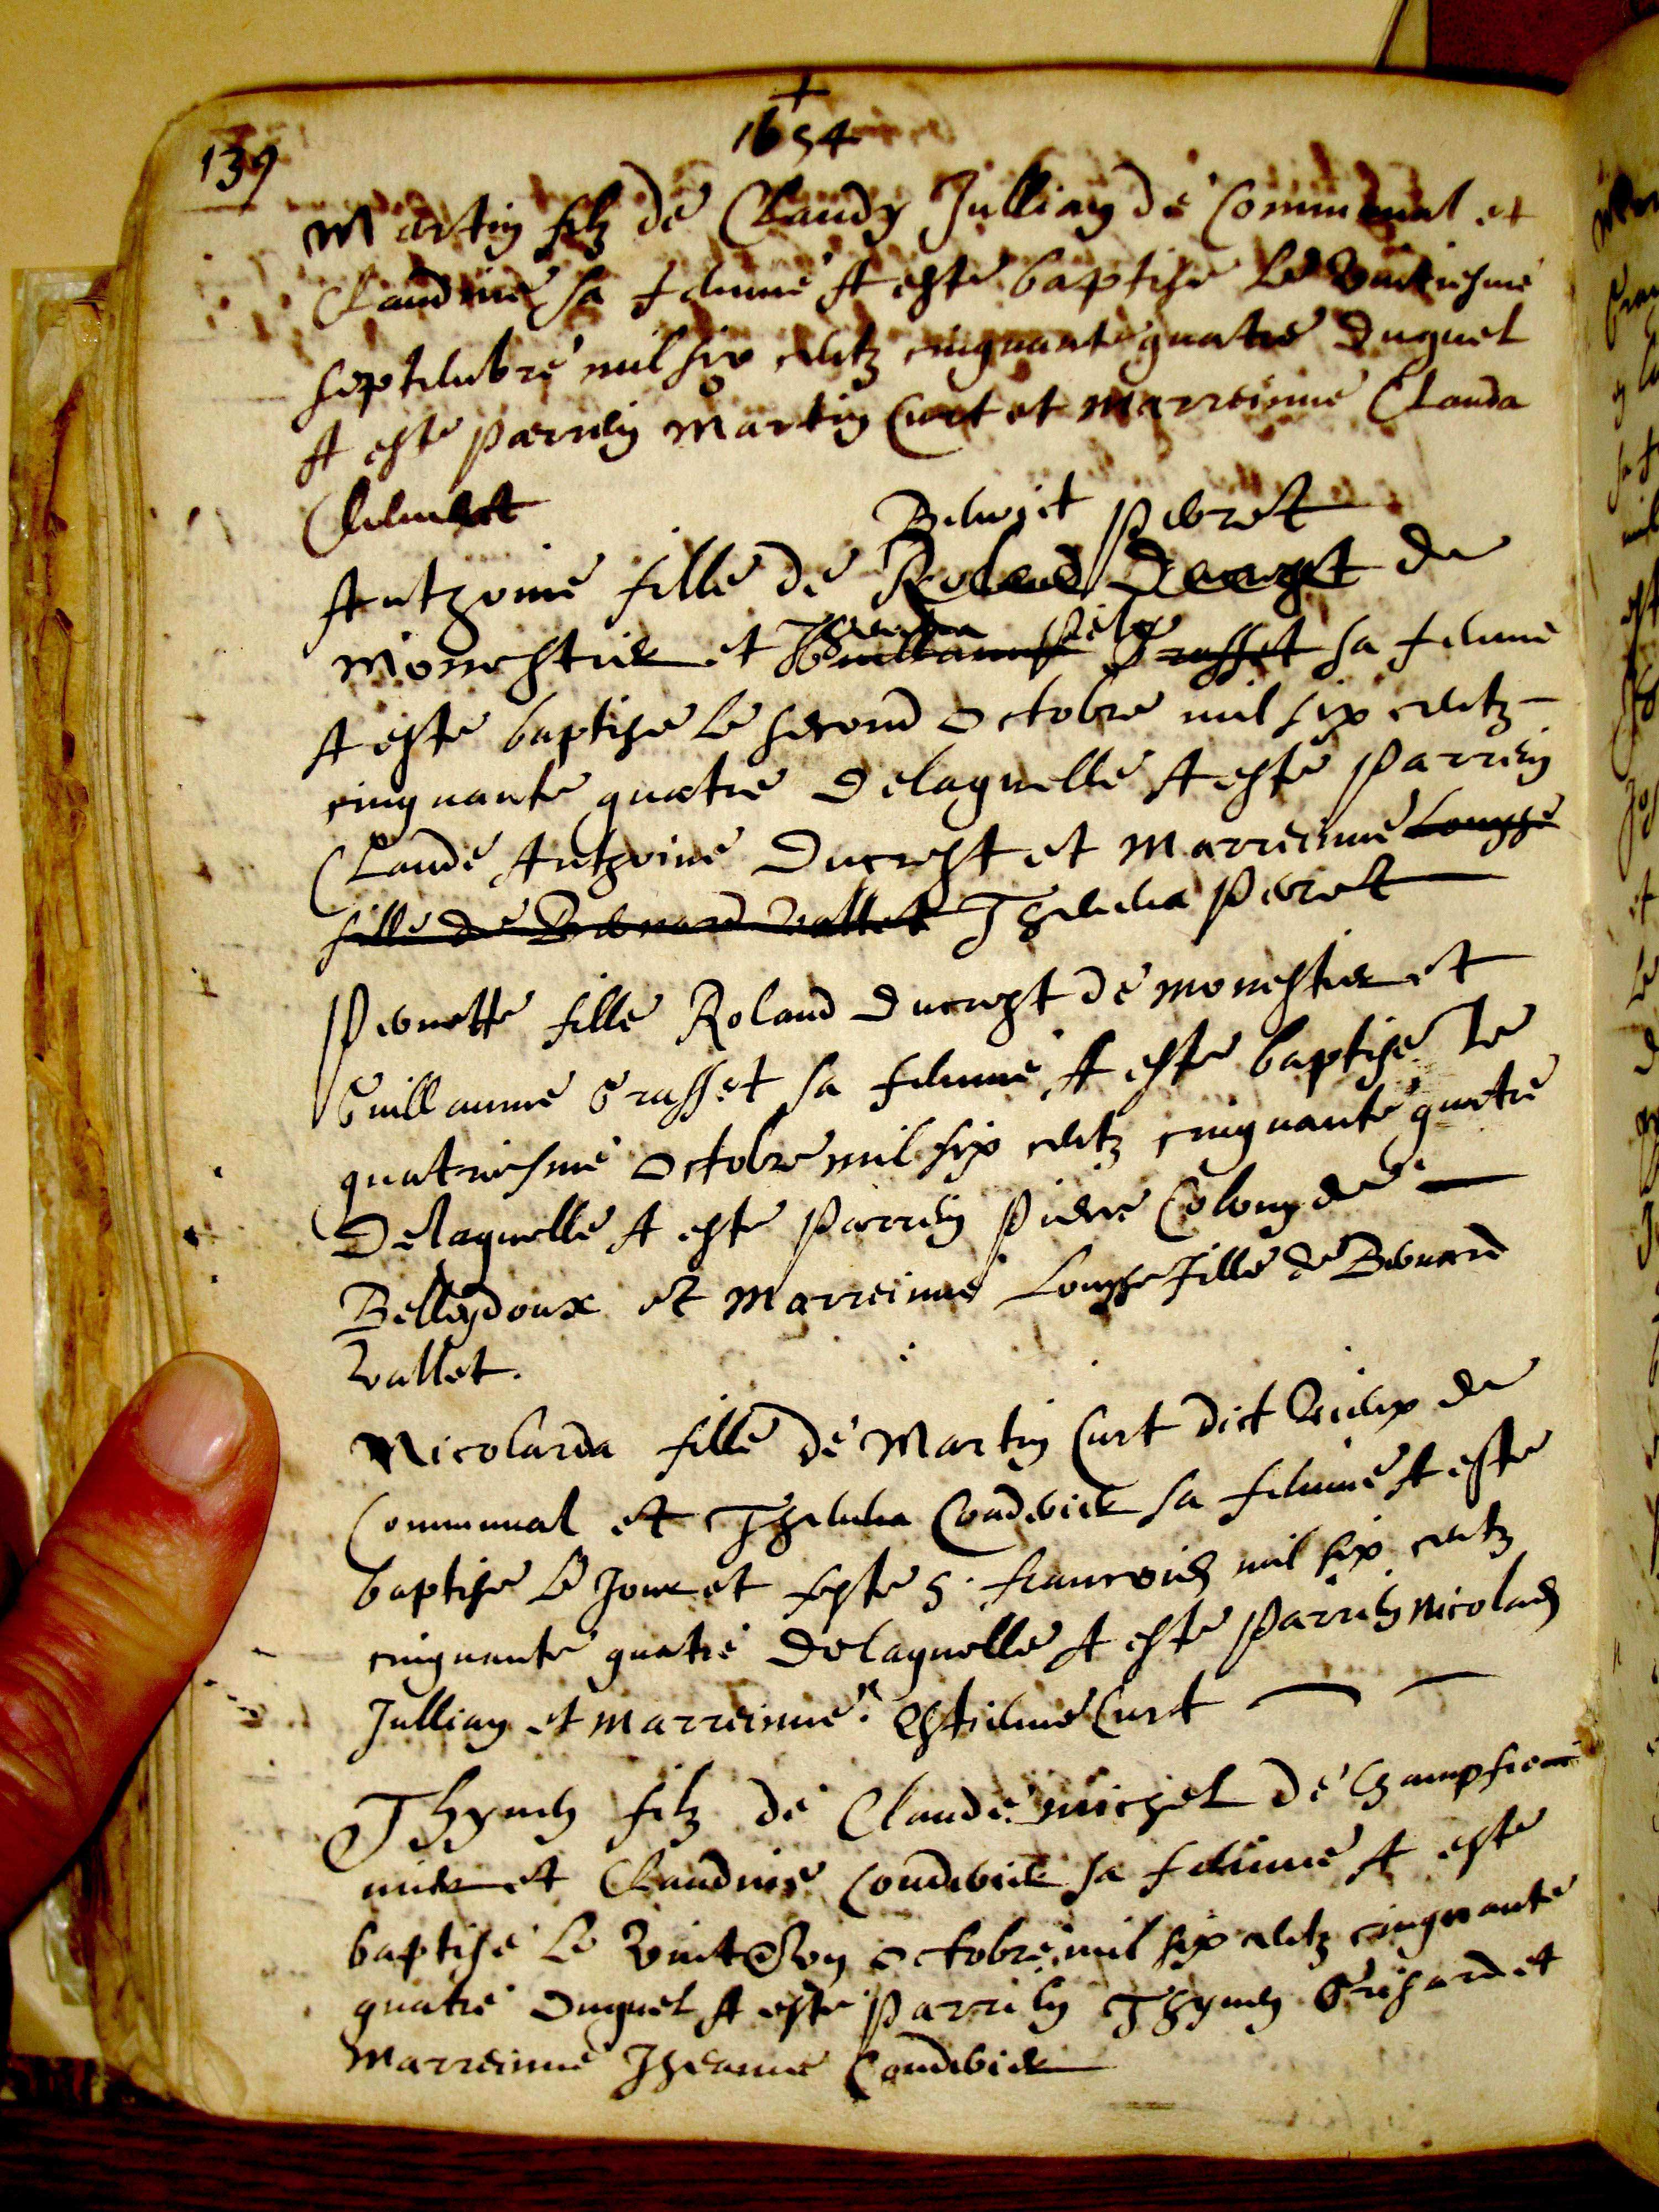 +
1654
139
Martin filz de Claudy Jullian de Communal et
Claudine sa femme A esté baptisé le
septembre mil six centz cinquante quatre Duquel
A esté parrein Martin Curt et marreinne Clauda
Benoict Perret
Antzoine fille de de
Monestier et sa femme
A esté baptisé le second octobre mil six centz
cinquante quatre De laquelle A esté parrein
Claude Antzoine Ducrest et marreinne Louyse
fille de Bernard Vallet Thevena Perret
Pernette fille Roland Ducrest de monestier et
Guillaume Grasset sa femme A esté baptisé Le
quatriesme octobre mil six centz cinquante quatre
De laquelle A esté parrein Pierre Colony de
Belleydoux et marreinne Louyse fille de Bernard
Vallet.
Nicolarda fille de Martin Curt dict de
Communal et Thevena sa femme A esté
baptisé le Jour et feste S. francois mil six centz
cinquante quatre De laquelle A esté parrein Nicolas
Jullian et marreinne Estienne Curt
Thyven filz de Claude michel de
et Claudine sa femme A esté
baptisé le octobre mil six centz cinquante
quatre Duquel A esté parrein Thyven Grisard et
marreinne Jheanne